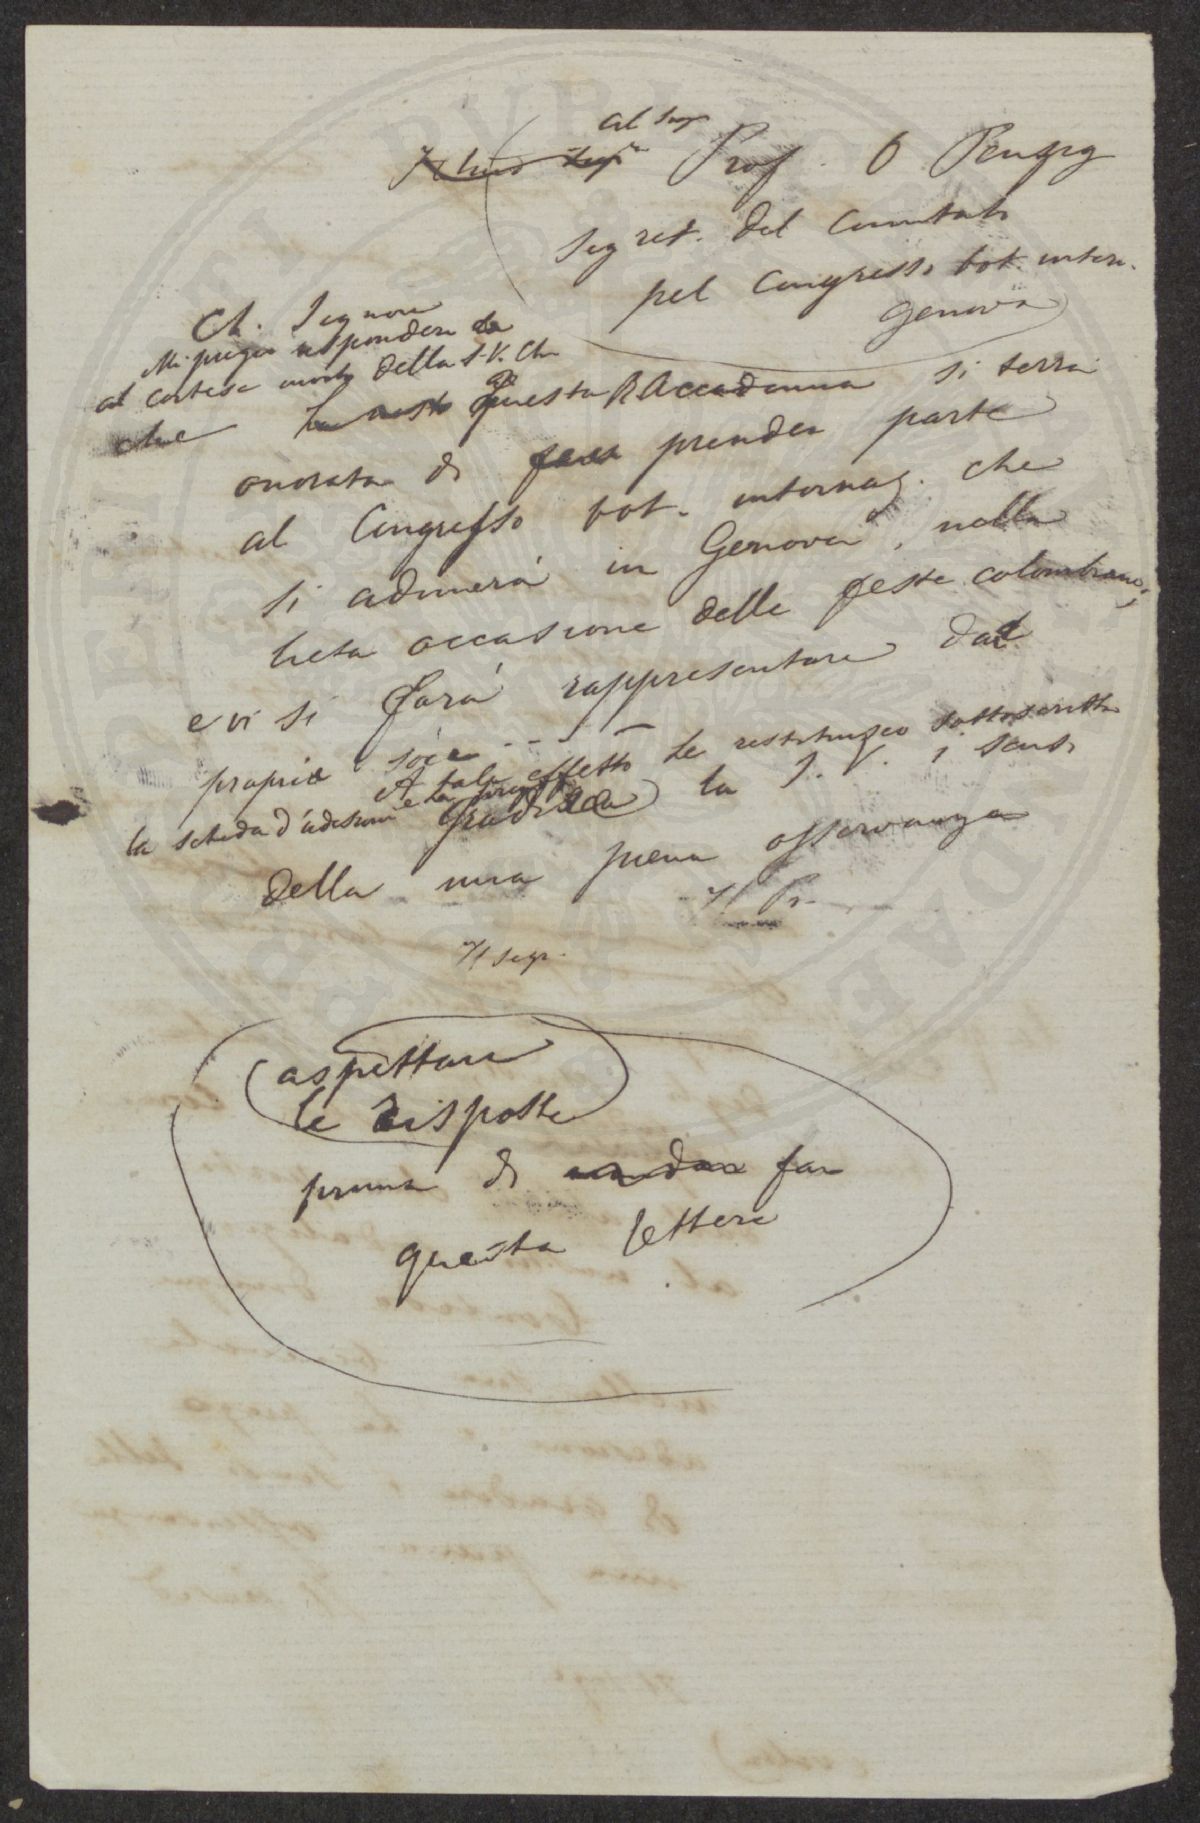 al Sigr
Prof. O Penzig
Segret. del Comitato
pel Congresso bot. intern.
Genova
Ch. Signore
Mi pregio rispondere
al cortese invito della S. V. Ch.
che questa R Accademia si terrà
onorata di prender parte
al Congresso bot. internaz. che
si adunerà in Genova, nella
lieta occasione delle feste colombiane,
e vi si farà rappresentare dai
proprii socii - - - -
A tale effetto Le restituisco sottoscritta
la scheda d'adesione e la prego
Gradisca la S. V. i sensi
della mia piena osservanza
Il Pr.
Il segr.
aspettare
le risposte
prima di far
questa lettera